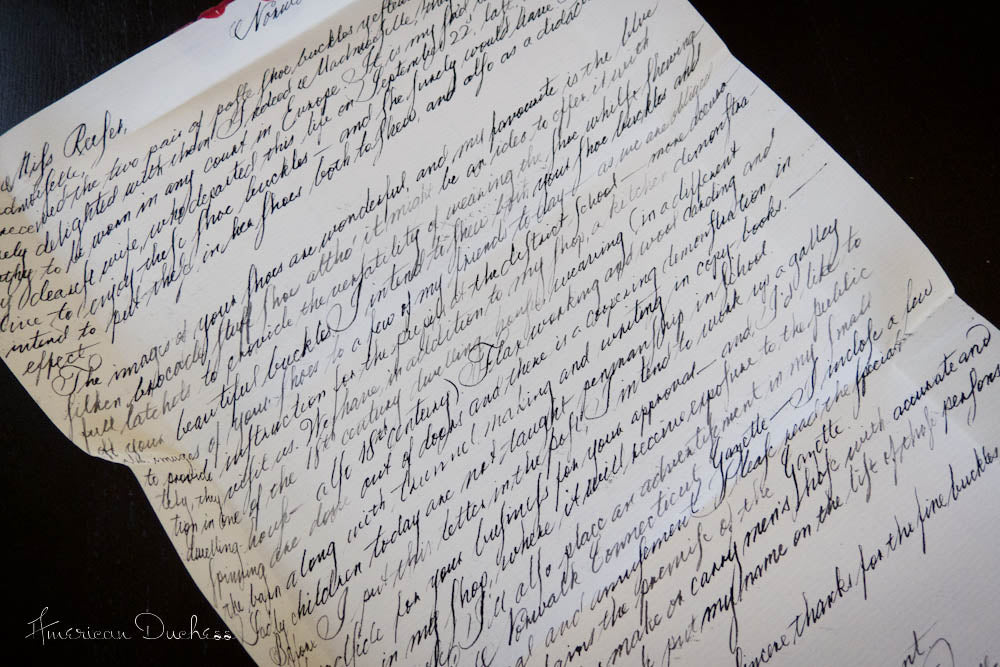 Norwa
Miſs Reeſer,
received the two pair of paſte ſhoe buckles yeſter
delighted with them! Indeed
to be worn in any court in Europe. It is my
deceaſed wife, who departed this life on September 22d laſt
live to enjoy theſe ſhoe buckles – and ſhe ſurely would have
intend to put them in her ſhoes both to ſhow, and alſo as a
effect.
The images of your ſhoes are wonderful, and my favourite is the blue
ſilken brocade ſtuff ſhoe altho' it might be an idea to offer it with
full latchets to provide the verſatility of wearing the ſhoe whilſt ſhewing
off your beautiful buckles. I intend to your ſhoe buckles and
images of your ſhoes to a few of my friends to day – as we are obliged
to provide inſtruction for the pupils of the diſtrict ſchool – more accura-
tely, they viſit us. We have in addition to my ſhop, a kitchen demonſtra-
tion in one of the 18th century dwelling houſes, weaving (in a different
dwelling-houſe – alſo 18th century). Flax working and wool carding and
ſpinning are done out of doors and there is a coopering demonſtration in
the barn along with funnel making and writing in copy-books.
Sadly children today are not taught penmanſhip in ſchool.
Before I put this letter in the poſt, I intend to work up a galley
for your buſineſs for your approval – and, I'd like to
in my ſhop, where it will receive expoſure to the public
I'll alſo place an advertiſement in my ſmall
Norwalk Connecticut Gazette – I incloſe a few
al and amuſement. Pleaſe read the
the premiſe of the Gazette.
make or carry men's ſhoes with accurate and
put my name on the liſt of thoſe perſons
ſincere thanks for the fine buckles
American Duchess